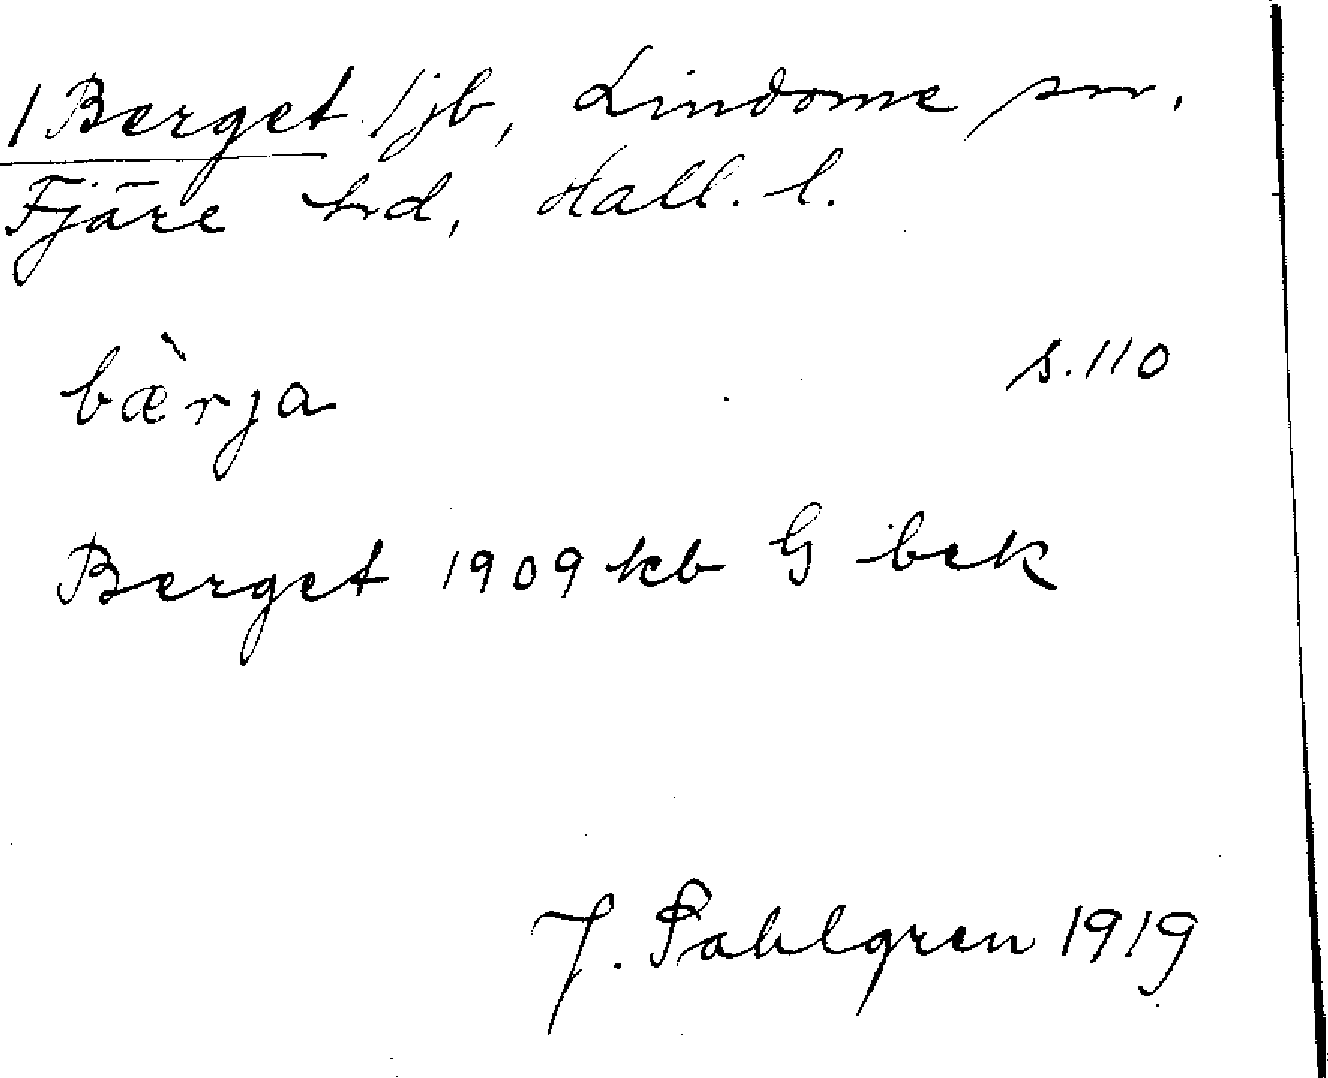 1 Berget 1 jb, Lindome sn.
Fjäre hd, Hall. l.
bæ̀rja s. 110
Berget 1909 kb G bek
J. Sahlgren 1919